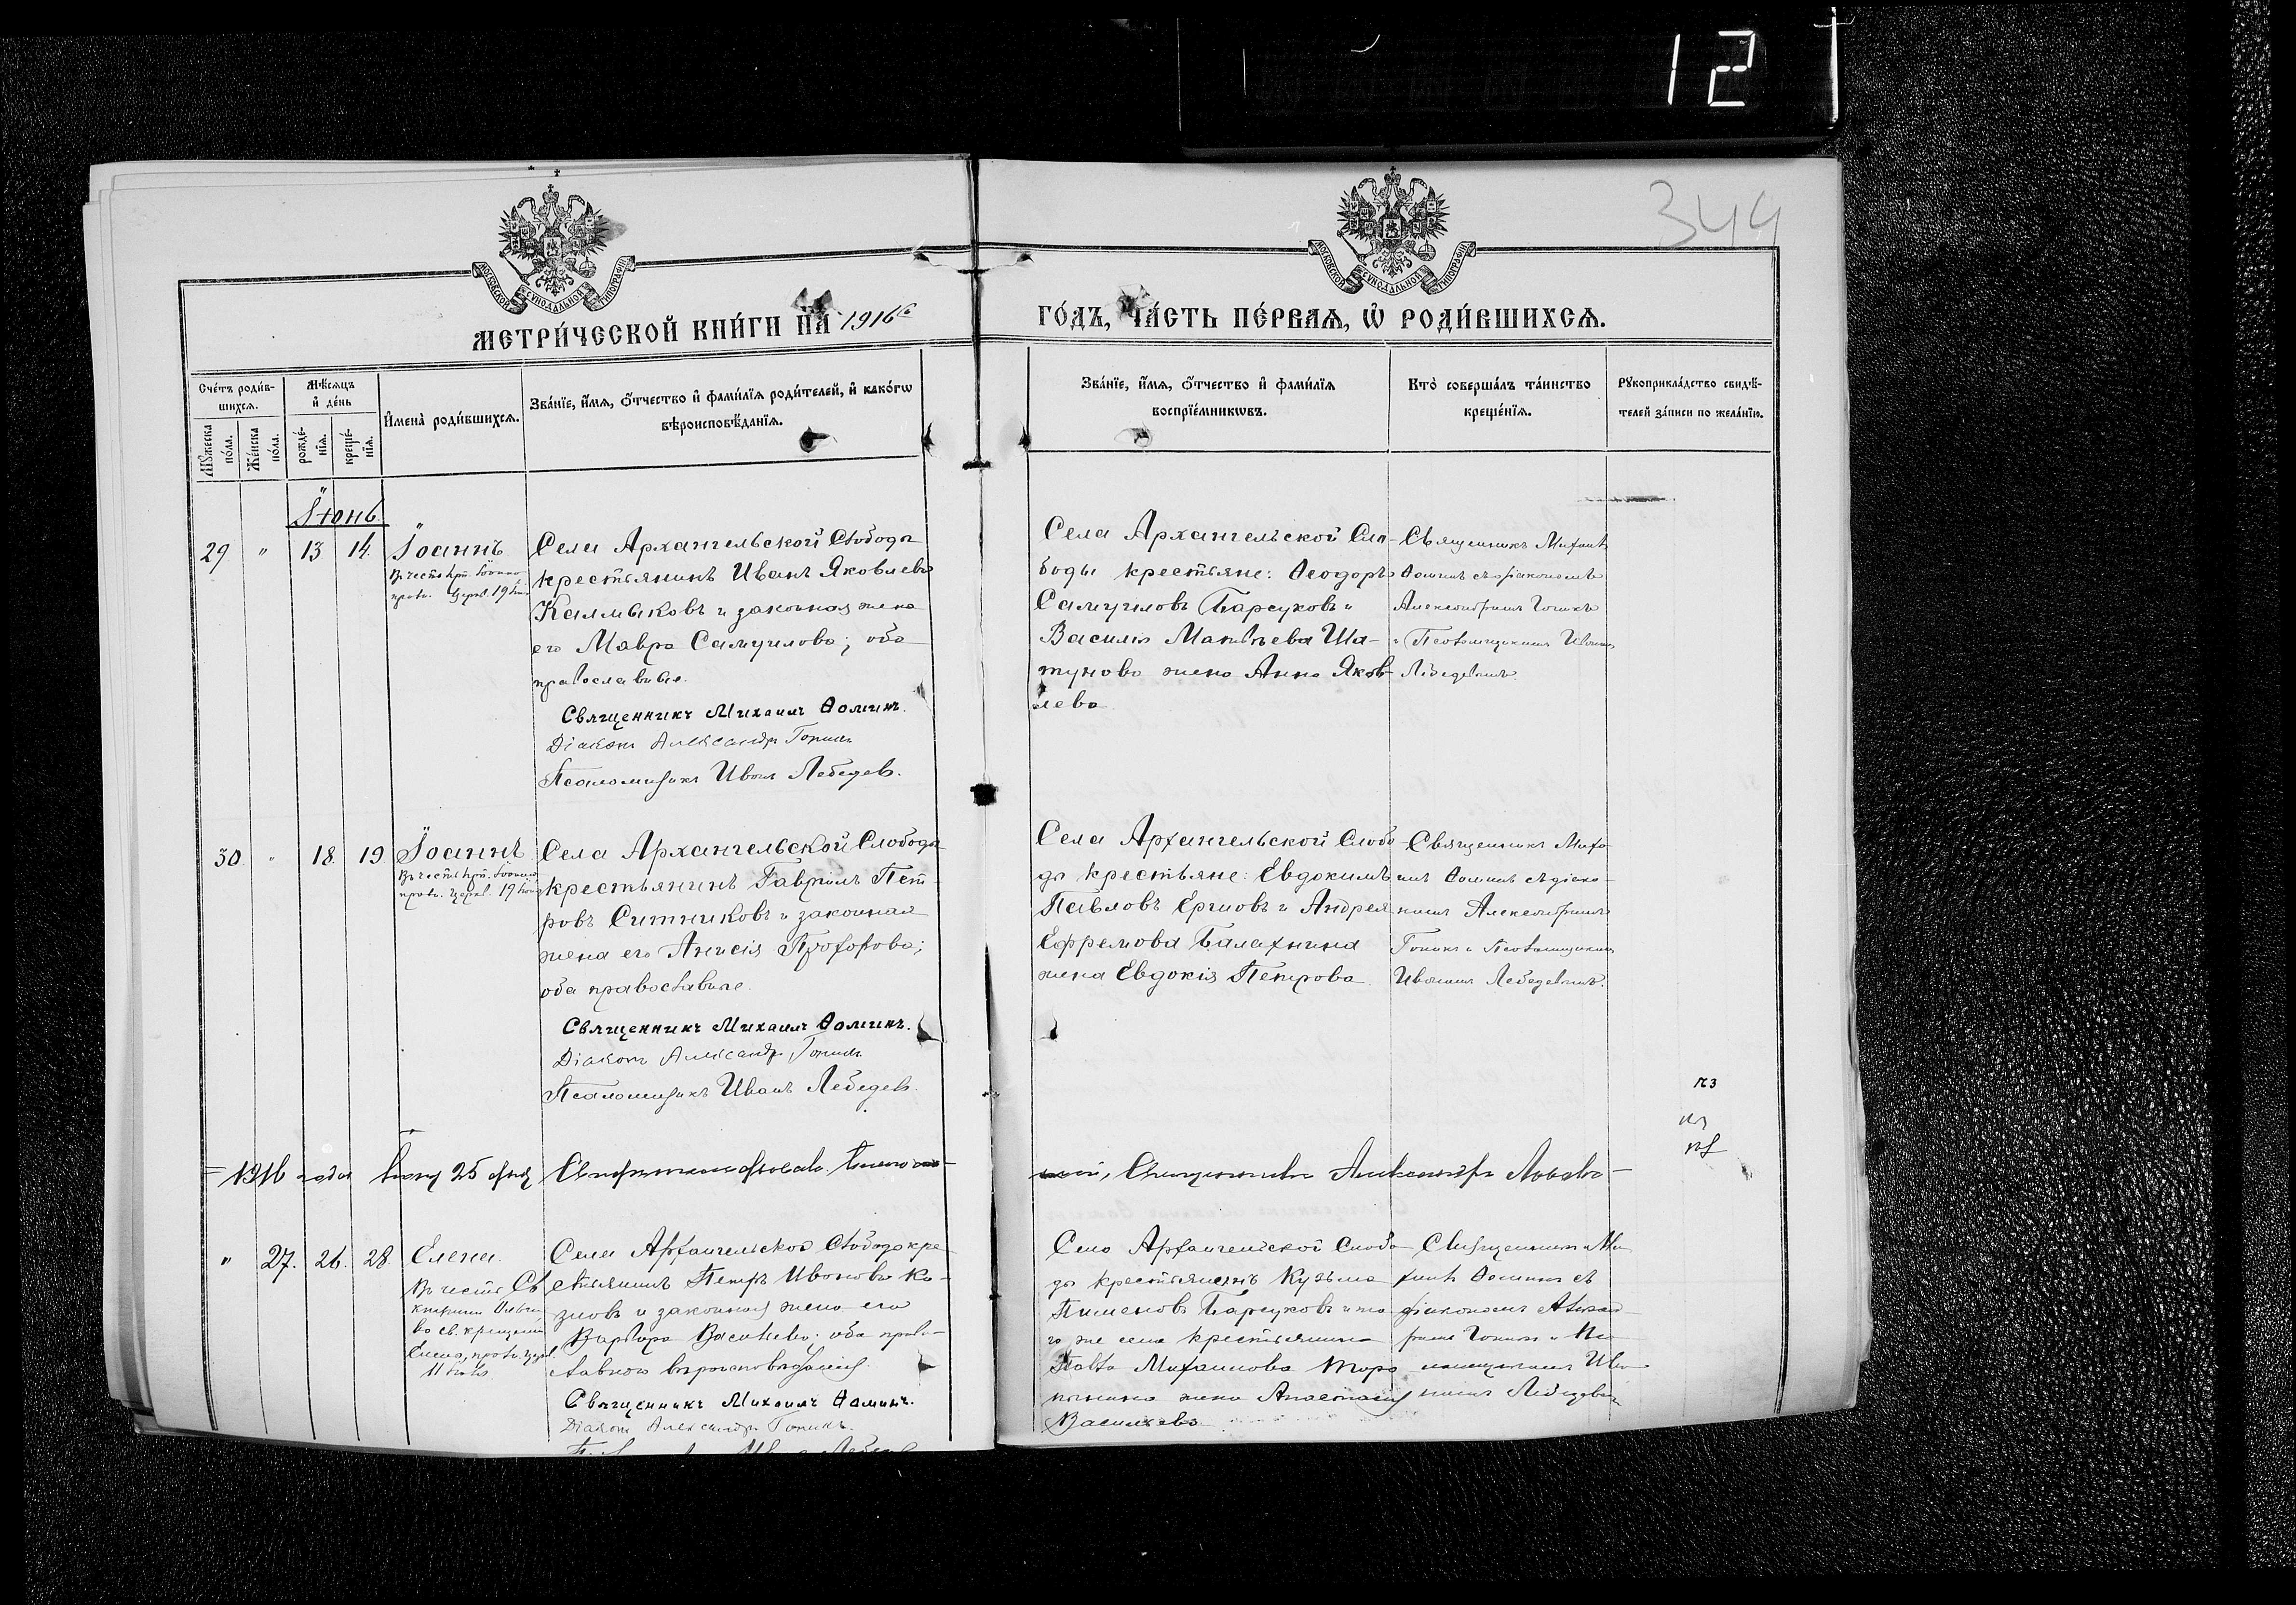 12
344
МОСКОВСКОЙ СѴНОДАЛЬНОЙ ТИПОГРАФІИ
МОСКОВСКОЙ СѴНОДАЛЬНОЙ ТИПОГРАФІИ
МЕТРИ́ЧЕСКОЙ КНИ́ГИ НА̀ 1916й
ГО́ДЪ, ЧА́СТЬ ПЕ́РВАЯ, Ѡ҆ РОДИ́ВШИХСЯ.
Сче́тъ роди́в-
шихся.
Мꙋ́жеска по́ла.
Же́нска по́ла.
Мѣ́сяцъ
и҆ де́нь
рожде́-
нїя.
креще́-
нїя.
И҆мена̀ роди́вшихся.
Зва́нїе, и҆́мя, ѻ҆́тчество и҆ фами́лїя роди́телей, и҆ како́гѡ
вѣроисповѣ́данїя.
Зва́нїе, и҆́мя, ѻ҆́тчество и҆ фами́лїя
воспрїе́мникѡвъ.
Кто̀ соверша́лъ та́инство
креще́нїя.
Рꙋкоприкла́дство свидѣ́-
телей за́писи по жела́нїю.
Іюнь
29 " 13 14 Іоаннъ
19
Села Архангельской Слободы
крестьянинъ Иванъ Яковлевъ
Калмыковъ и законная жена
его Мавра Самуилова; оба
православные.
Священникъ Михаилъ Ѳоминъ.
Діаконъ Александръ
Псаломщикъ Иванъ Лебедевъ.
Села Архангельской Сло-
боды крестьяне: Ѳеодоръ
Самуиловъ Барсуковъ и
Василія Матвѣева Ша-
тунова жена Анна Яков-
лева
Священникъ Михаилъ
Ѳоминъ съ діакономъ
Александромъ
и Псаломщикомъ Иваномъ
Лебедевымъ
30 " 18 19 Іоаннъ
19
Села Архангельской Слободы
крестьянинъ Гавріилъ Пет-
ровъ Ситниковъ и законная
жена его Анисія Прохорова;
оба православные.
Священникъ Михаилъ Ѳоминъ.
Діаконъ Александръ
Псаломщикъ Иванъ Лебедевъ.
Села Архангельской Слобо-
ды крестьяне: Евдокимъ
Павловъ и Андрея
Ефремова Балахнина
жена Евдокія Петрова
Священникъ Миха-
илъ Ѳоминъ съ діако-
номъ Александромъ
и Псаломщикомъ
Иваномъ Лебедевымъ.
1916 года 25 дня
Священникъ Александръ
" 27. 26. 28. Елена.
Въ честь Св.
во св. крещеніи
11 Іюля
Села Архангельской Слободы кре-
стьянинъ Петръ Ивановъ Ко-
зловъ и законная жена его
Варвара Васильева; оба право-
славнаго вѣроисповѣданія.
Священникъ Михаилъ Ѳоминъ.
Діаконъ Александръ
Села Архангельской Слобо-
ды крестьянинъ Кузьма
Пименовъ Барсуковъ и то-
го же села крестьянина
Павла Михаилова
жена Анастасія
Васильева
Священникъ Ми-
хаилъ Ѳоминъ съ
діакономъ Алексан-
дромъ и Пса-
ломщикомъ Ива-
номъ Лебедевымъ